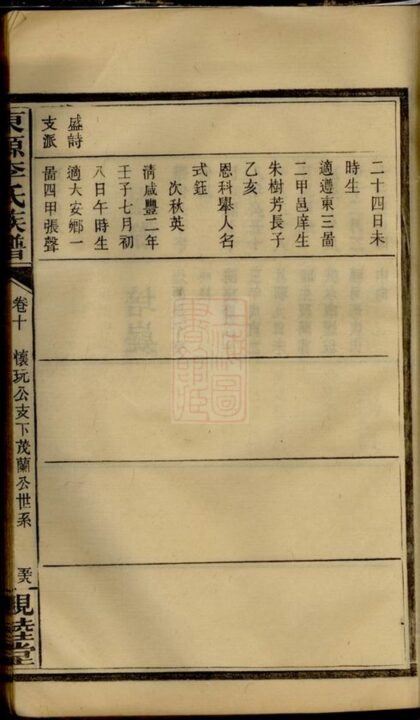 二十四日未
時生
適遵東三啚
二甲邑庠生
朱樹芳長子
乙亥
恩科舉人名
式鈺
次秋英
清咸豐二年
壬子七月初
八日午時生
適大安鄉一
啚四甲張聲
盛詩
支派
東源李氏族譜
卷十
懷玩公支下茂蘭公世系
親睦堂